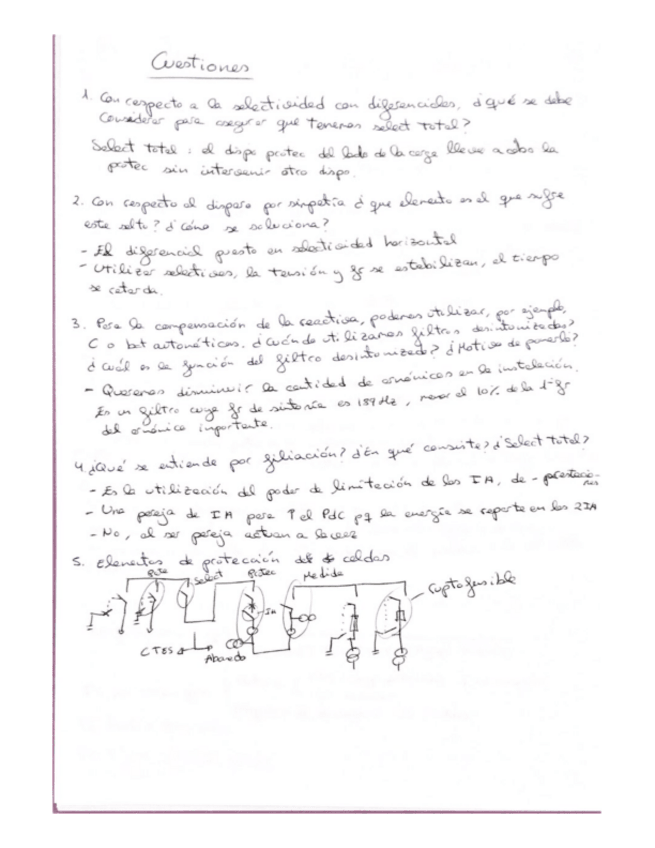 Cuestiones
1. Con respecto a la selectividad con diferenciales, ¿qué se debe
considerar para asegurar que tenemos select total?
Select total: el dispo protec del lado de la carga lleve a cabo la
protec sin intervenir otro dispo.
2. Con respecto al disparo por simpatía ¿que elemento es el que sufre
este salto? ¿cómo se soluciona?
- El diferencial puesto en selectividad horizontal
- Utilizar selectivos, la tensión y fr se estabilizan, el tiempo
se retarda.
3. Para la compensación de la reactiva, podemos utilizar, por ejemplo,
C o bat automáticas. ¿Cuándo utilizamos filtros desintonizados?
¿Cuál es la función del filtro desintonizado? ¿Motivo de ponerlo?
- Queremos disminuir la cantidad de armónicos en la instalación.
Es un filtro cuya fr de sintonía es 189Hz, menor el 10% de la 1ª fr
del armónico importante.
4. ¿Qué se entiende por filiación? ¿En qué consiste? ¿Select total?
- Es la utilización del poder de limitación de los IA, de - prestaciones
- Una pareja de IA para ↑ el PdC pq la energía se reparte en los 2IA
- No, al ser pareja actuan a la vez
5. Elementos de protección de celdas
Select Protec Medida
ruptofusible
IA
CTES Abonado